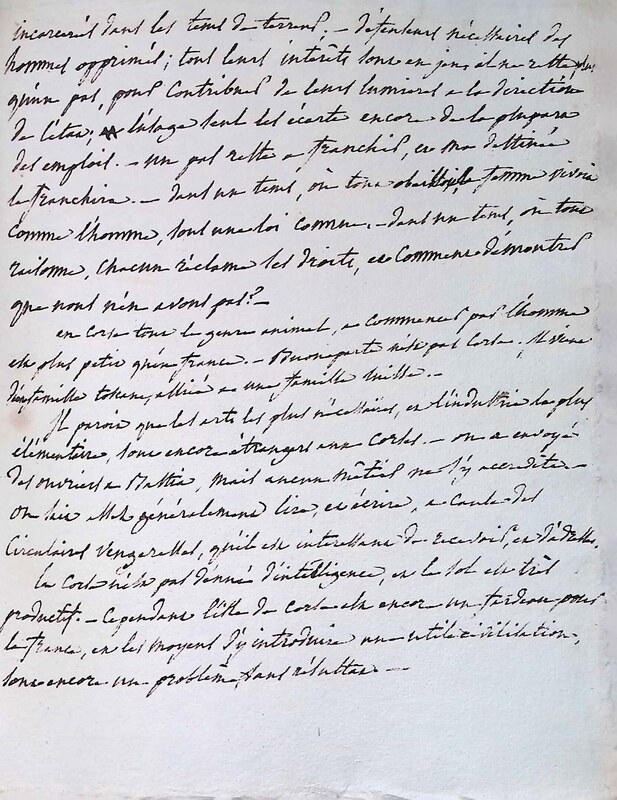 incarcerés dans les tems de terreur; – défenseurs nécessaires des
hommes opprimés; tous leurs intérêts sont en jeu, il ne reste plus
qu'un pas, pour contribuer de leurs lumieres a la direction
de l'état; l'usage seul les écarte encore de la plupart
des emplois. – un pas reste a franchir, et ma destinée
le franchira. – dans un tems, où tout obéissoit, la femme vivoit
comme l'homme, sous une loi comune. – dans un tems, où tout
raisonne, chacun réclame ses droits, et comment démontrer
que nous n'en avons pas? –
en Corse tout le genre animal, a commencer par l'homme
est plus petit qu'en france. – Buonaparte n'est pas Corse. Il vient
d'une famille toscane, alliée a une famille
Il paroit que les arts les plus nécessaires, et l'industrie la plus
élémentaire, sont encore étrangers aux Corses. – on a envoyé
des ouvriers a Bastia, mais aucun métier ne s'y accrédite. –
on sait assez généralement lire, et écrire, a cause des
Circulaires vengeresses, qu'il est interessant de recevoir, et d'adresser.
Le Corse n'est pas denué d'intelligence, et le sol est très
productif. – Cependant l'isle de Corse est encor un fardeau pour
la france, et les moyens d'y introduire une utile civilisation,
sont encore un problême sans résultat –